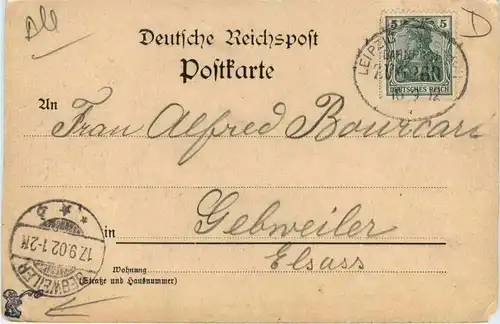 All
D
Deutsche Reichspost
Postkarte
5 5
DEUTSCHES REICH
LEIPZIG
An
Frau Alfred Bourcart
Gebweiler
in
Elsass
17.9.02.1-2N
GEBWEILER
Wohnung
(Straße und Hausnummer)